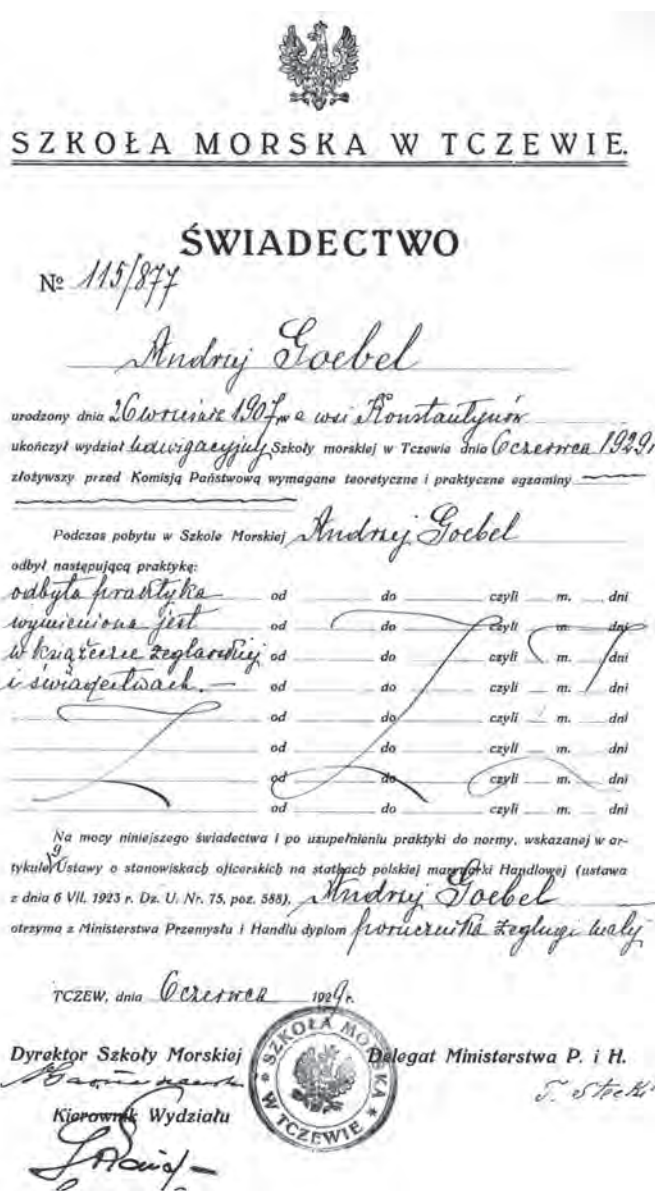 SZKOŁA MORSKA W TCZEWIE.
ŚWIADECTWO
№ 115/877
Andrzej Goebel
urodzony dnia 26 września 1907 r. we wsi Konstantynów
ukończył wydział nawigacyjny Szkoły morskiej w Tczewie dnia 6 czerwca 1929 r
złożywszy przed Komisją Państwową wymagane teoretyczne i praktyczne egzaminy
Podczas pobytu w Szkole Morskiej Andrzej Goebel
odbył następującą praktykę:
odbyta praktyka od do czyli m. dni
wymieniona jest od do czyli m. dni
w książeczce żeglarskiej od do czyli m. dni
i świadectwach. — od do czyli m. dni
od do czyli m. dni
od do czyli m. dni
od do czyli m. dni
od do czyli m. dni
Na mocy niniejszego świadectwa i po uzupełnieniu praktyki do normy, wskazanej w ar-
tykule 9 Ustawy o stanowiskach oficerskich na statkach polskiej marynarki Handlowej (ustawa
z dnia 6 VII. 1923 r. Dz. U. Nr. 75, poz. 588), Andrzej Goebel
otrzyma z Ministerstwa Przemysłu i Handlu dyplom porucznika żeglugi małej
TCZEW, dnia 6 czerwca 1929 r.
Dyrektor Szkoły Morskiej Delegat Ministerstwa P. i H.
T. Stecki
Kierownik Wydziału
SZKOŁA MORSKA * W TCZEWIE *